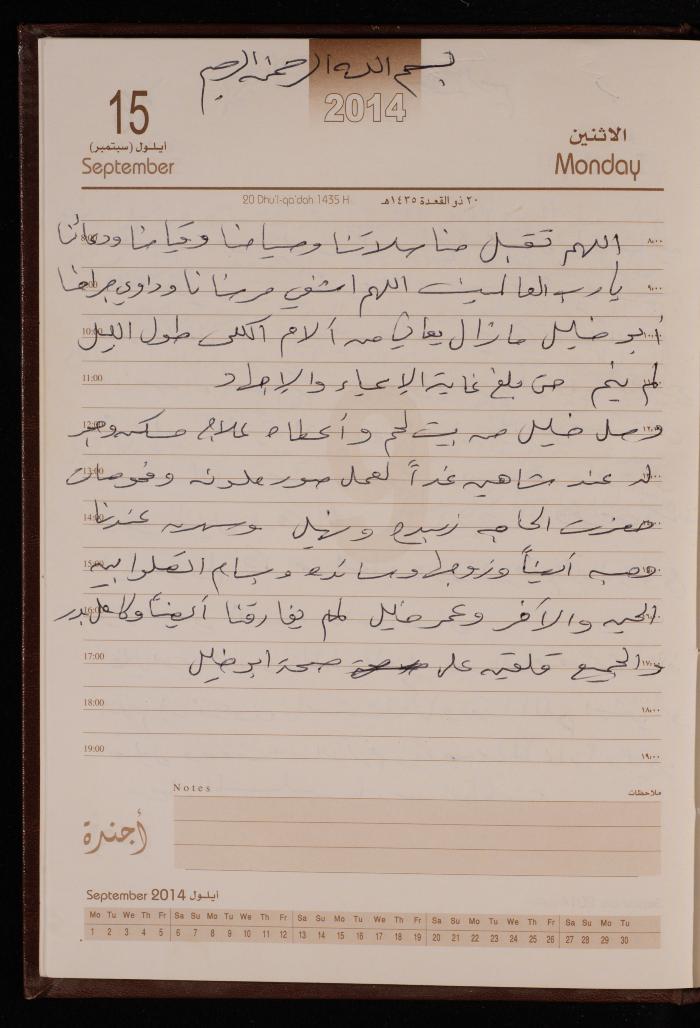 بسم الله الرحمن الرحيم
2014
15
أيلول (سبتمبر)
September
الاثنين
Monday
20 Dhu'l-qa'dah 1435 H
٢٠ ذو القعدة ١٤٣٥هـ
اللهم تقبل منا صلاتنا وصيامنا وقيامنا ودعائنا
يا رب العالمين اللهم اشفي مرضانا وداوي جراحنا
أبو خليل مازال يعاني من آلام الكلى طول الليل
لم ينم حتى بلغ غاية الإعياء والإجهاد
وصل خليل من بيت لحم وأعطاه علاج مسكن وحجز
له عند شاهين غداً لعمل صور ملونه وفحوصات
حضرت الحاجه زبيده ونبيل وسهرت عندنا
أيضاً وزوجها وسائده وبسام
الحين والآخر وعمر خليل لم يفارقنا أيضاً وكامل بدر
والجميع قلقين على صحة ابو خليل
8:00 ٨:٠٠
9:00 ٩:٠٠
10:00 ١٠:٠٠
11:00
12:00 ١٢:٠٠
13:00 ١٣:٠٠
14:00
15:00
16:00
17:00 ١٧:٠٠
18:00 ١٨:٠٠
19:00 ١٩:٠٠
Notes ملاحظات
أجندة
September 2014 أيلول
Mo Tu We Th Fr Sa Su Mo Tu We Th Fr Sa Su Mo Tu We Th Fr Sa Su Mo Tu We Th Fr Sa Su Mo Tu
1 2 3 4 5 6 7 8 9 10 11 12 13 14 15 16 17 18 19 20 21 22 23 24 25 26 27 28 29 30